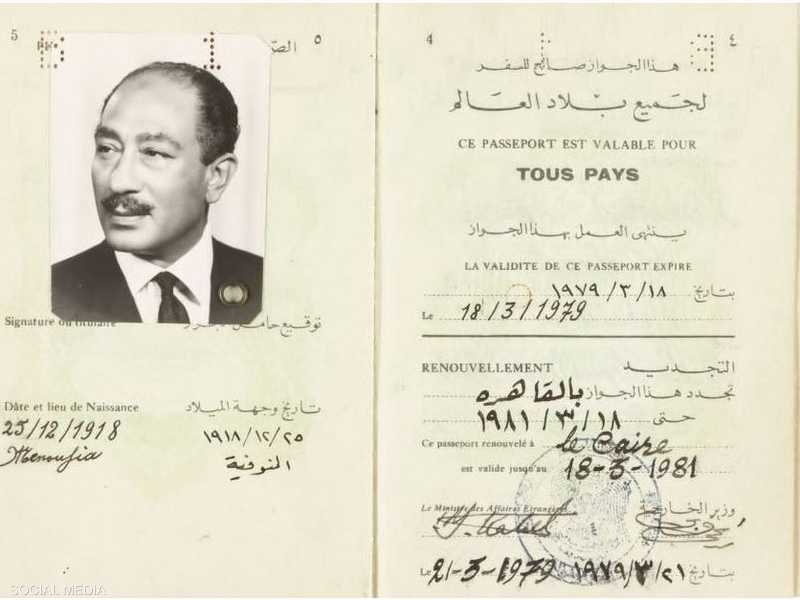 5
٥
الصـ
Signature du titulaire
توقيع حامل الجـواز
Dâte et lieu de Naissance
تاريخ وجهة الميلاد
25/12/1918
١٩١٨/١٢/٢٥
Menoufia
المنوفية
SOCIAL MEDIA
4
٤
هذا الجواز صالح للسفر
لجميع بلاد العالم
CE PASSEPORT EST VALABLE POUR
TOUS PAYS
ينتهى العمل بهذا الجواز
LA VALIDITE DE CE PASSEPORT EXPIRE
بتاريخ ١٩٧٩/٣/١٨
Le 18/3/1979
RENOUVELLEMENT
التجديد
تجدد هذا الجواز بالقاهره
حتى ١٩٨١/٣/١٨
Ce passeport renouvelé à le Caire
est valide jusqu'au 18-3-1981
Le Ministre des Affaires Etrangères
وزير الخارجية
Le 21-3-1979
بتاريخ ١٩٧٩/٣/٢١